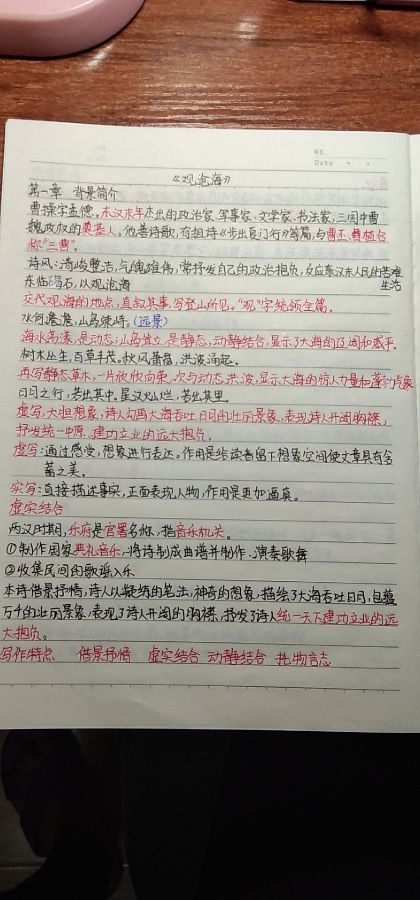 NO.
Date
《观沧海》
第一章 背景简介
曹操字孟德。东汉末年杰出的政治家、军事家、文学家、书法家、三国中曹
魏政权的奠基人。他善诗歌,有组诗《步出夏门行》等篇,与曹丕、曹植合
称“三曹”。
诗风:清峻整洁,气魄雄伟,常抒发自己的政治抱负,反应东汉末人民的苦难
生活
东临碣石,以观沧海
交代观海的地点,直叙其事,写登山所见。“观”字统领全篇。
水何澹澹,山岛竦峙。(远景)
海水荡漾,是动态;山岛耸立,是静态,动静结合,显示了大海的辽阔和威严。
树木丛生,百草丰茂。秋风萧瑟,洪波涌起。
再写静态草木,一片欣欣向荣,次写动态洪波,显示大海的惊人力量和蓬勃气象
日月之行,若出其中。星汉灿烂,若出其里
虚写,大胆想象,诗人勾画大海吞吐日月的壮丽景象,表现诗人开阔胸襟,
抒发统一中原、建功立业的远大抱负。
虚写:通过感受,想象进行表达。作用是给读者留下想象空间使文章具有含
蓄之美。
实写:直接描述事实,正面表现人物,作用是更加逼真。
虚实结合
两汉时期,乐府是官署名称,指音乐机关。
①制作国家典礼音乐,将诗制成曲谱并制作、演奏歌舞
②收集民间的歌谣入乐
本诗借景抒情,诗人以凝练的笔法,神奇的想象,描绘了大海吞吐日月,包蕴
万千的壮丽景象,表现了诗人开阔的胸襟,抒发了诗人统一天下建功立业的远
大抱负。
写作特点 借景抒情 虚实结合 动静结合 托物言志